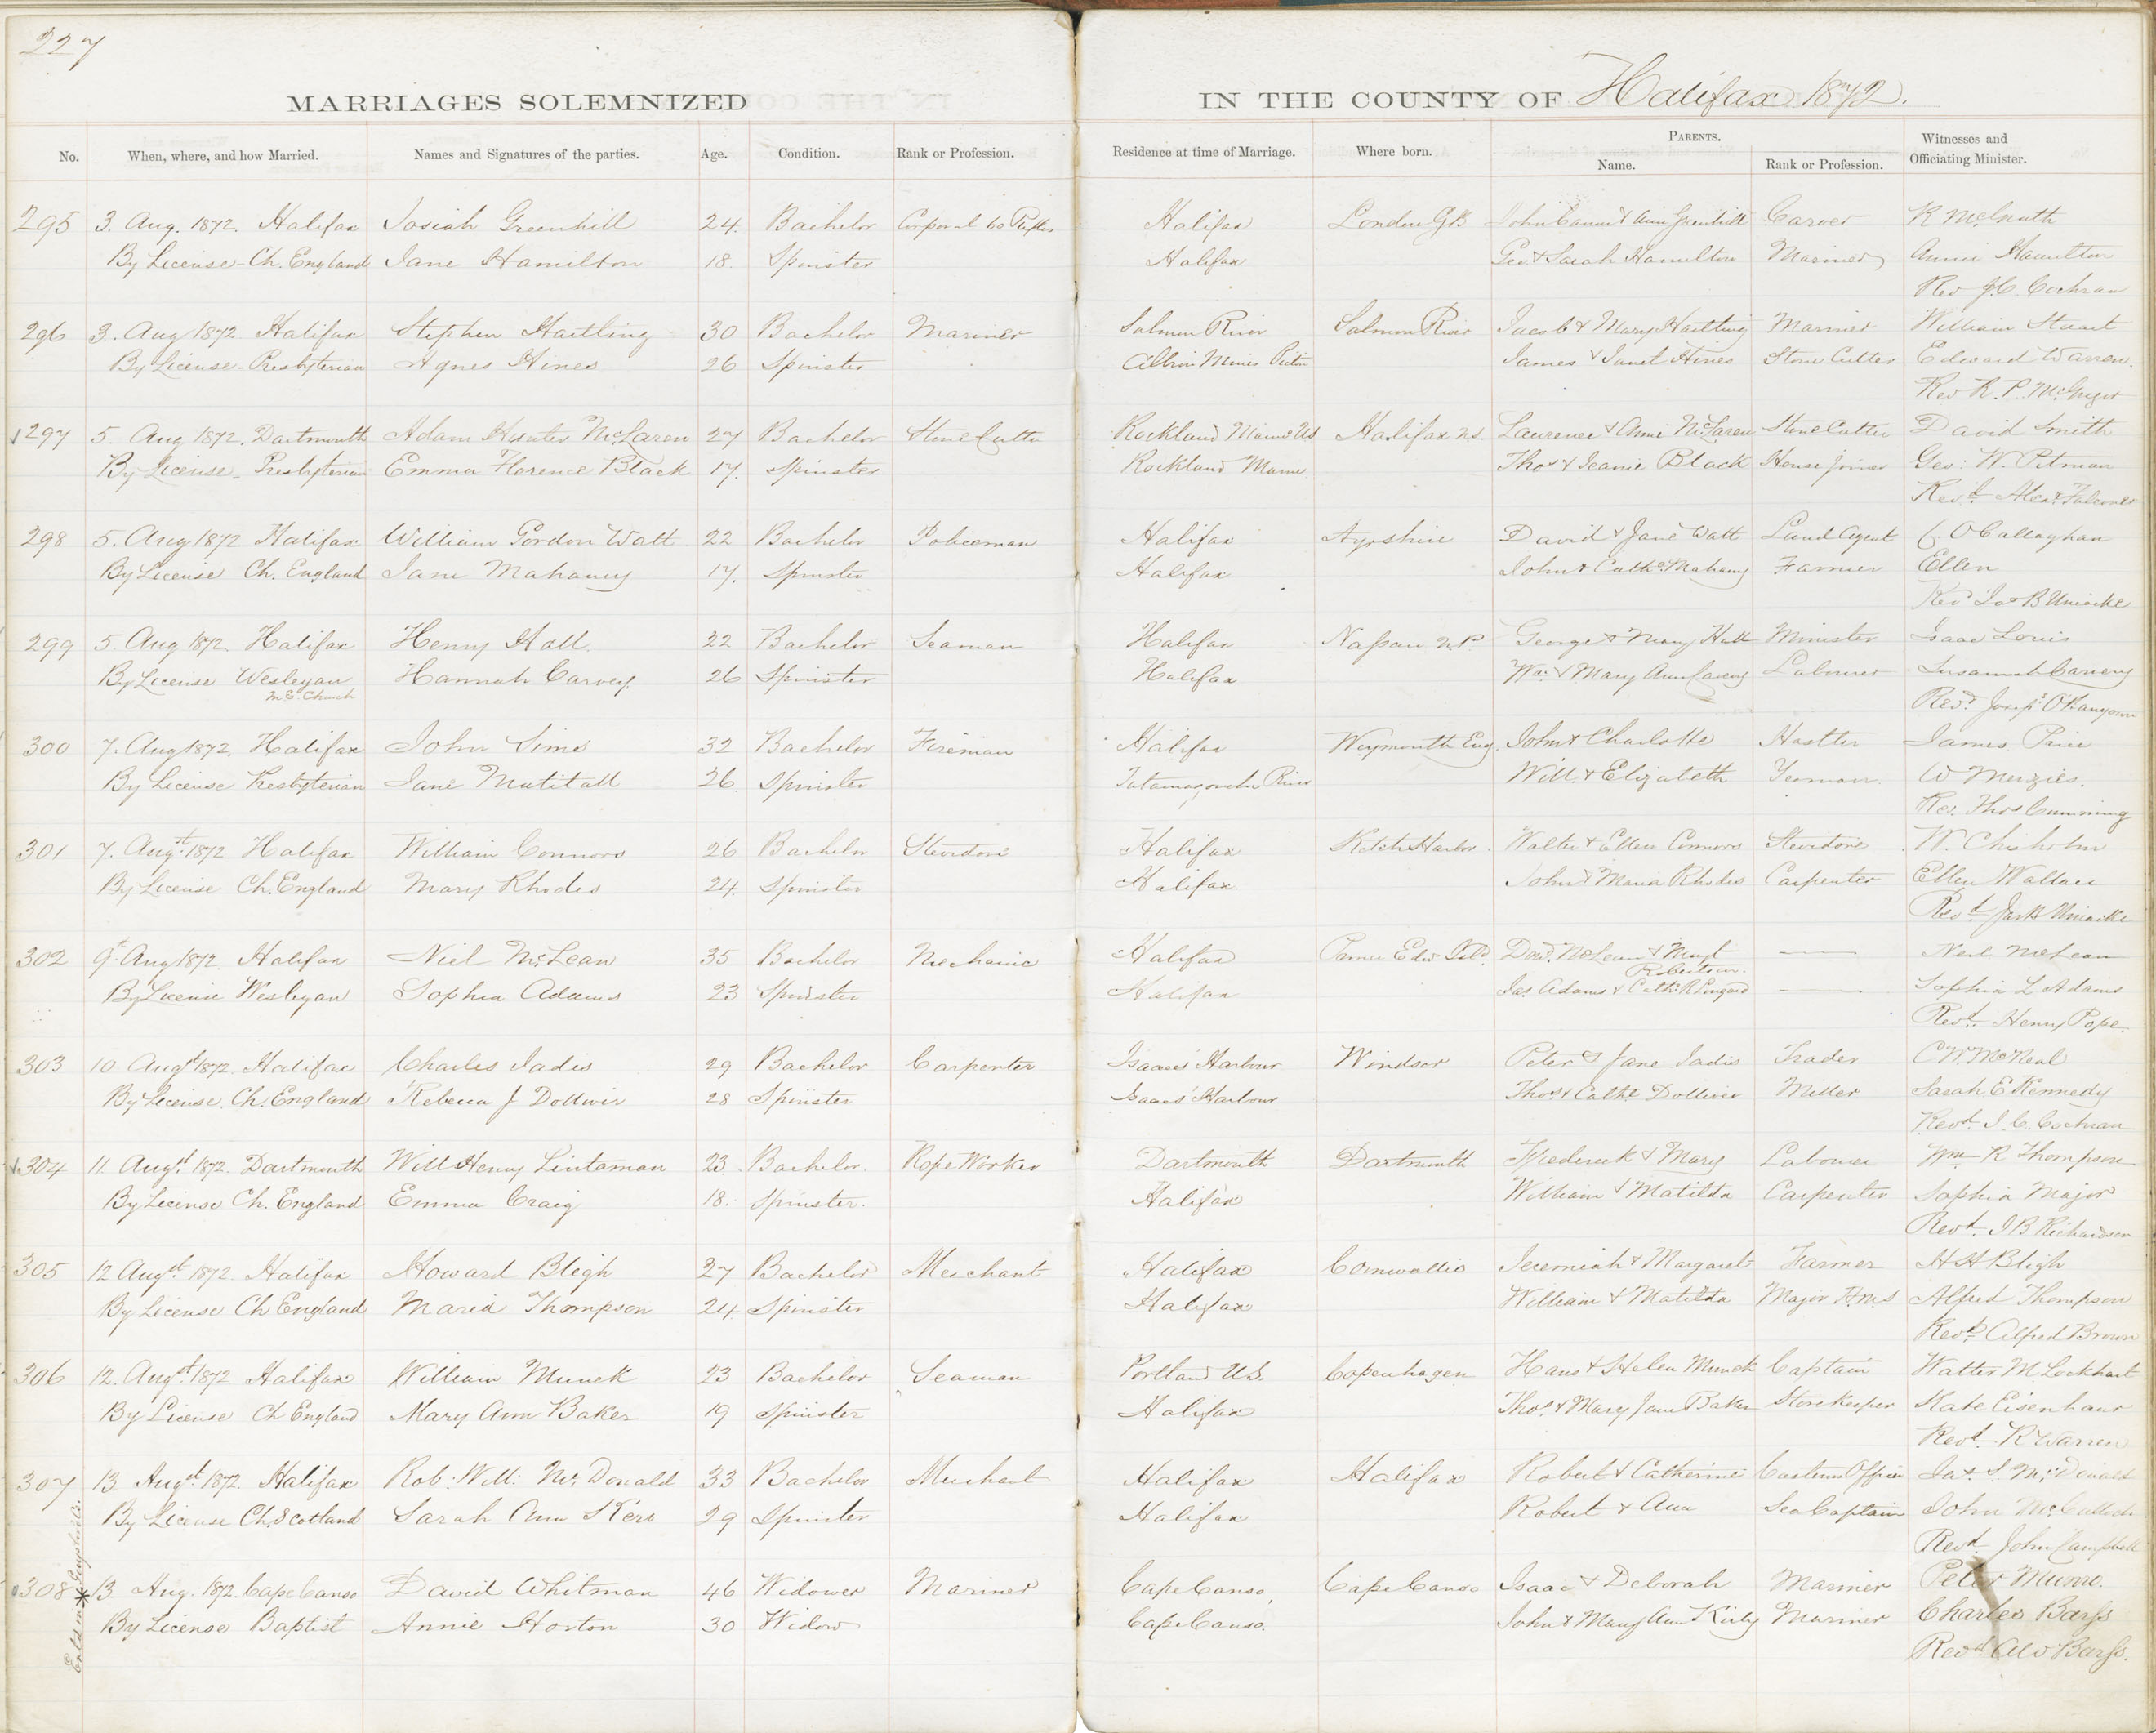 227
MARRIAGES SOLEMNIZED IN THE COUNTY OF Halifax 1872.
No. When, where, and how Married. Names and Signatures of the parties. Age. Condition. Rank or Profession. Residence at time of Marriage. Where born. PARENTS. Name. Rank or Profession. Witnesses and Officiating Minister.
295 3. Aug. 1872. Halifax Josiah Greenhill 24. Bachelor Corporal 60 Rifles Halifax London G.B. John & Ann Greenhill Carver R
By License - Ch. England Jane Hamilton 18. Spinster Halifax Geo. & Sarah Hamilton Mariner Annie Hamilton
Rev J.C. Cochran
296 3. Aug 1872. Halifax Stephen Hartling 30 Bachelor Mariner Salmon River Salmon River Jacob & Mary Hartling Mariner William Stuart
By License - Presbyterian Agnes Hines 26 Spinster Albion Mines Pictou James & Janet Hines Stone Cutter Edward Warren.
Rev R. P. McGregor
297 5. Aug 1872. Dartmouth Adam Hunter McLaren 27 Bachelor Stone Cutter Rockland Maine US Halifax N.S. Laurence & Annie McLaren Stone Cutter David Smith
By License - Presbyterian Emma Florence Black 17. Spinster Rockland Maine Thos & Jeanie Black House joiner Geo: W. Pitman
Revd. Alexr Falconer
298 5. Aug 1872 Halifax William Gordon Watt 22 Bachelor Policeman Halifax Ayrshire David & Jane Watt Land Agent C. O Callaghan
By License Ch. England Jane Mahaney 17. Spinster Halifax John & Cathe. Mahaney Farmer Ellen
Rev Jas B Uniacke
299 5. Aug 1872. Halifax Henry Hall. 22 Bachelor Seaman Halifax Nassau N.P. George & Mary Hall Minister Isaac Louis
By License Wesleyan Hannah Carvey. 26 Spinster Halifax Wm. & Mary Ann Carvey Labourer Susannah Carvery
M.E. Church Revd. Josep
300 7. Aug 1872. Halifax John Sims 32 Bachelor Fireman Halifax Weymouth Eng. John & Charlotte Hostler James Price
By License Presbyterian Jane Matitall 26. Spinster Tatamagouche River Will. & Elizabeth Yeoman. W Menzies.
Rev. Thos Cumming
301 7. Augst. 1872 Halifax William Connors 26 Bachelor Stevidore Halifax Ketch Harbor. Walter & Ellen Connors Stevidore W. Chisholm
By License Ch. England Mary Rhodes 24. Spinster Halifax John & Maria Rhodes Carpenter Ellen Wallace
Revd. Jas B Uniacke
302 9t. Aug 1872. Halifax Niel McLean 35 Bachelor Mechanic Halifax Prince Edw. Isld. Dond. McLean & Margt Robertson. —— Neil McLean
By License Wesleyan Sophia Adams 23 Spinster Halifax Jas. Adams & Cath. R —— Sophia L Adams
Revd. Henry Pope.
303 10 Augst 1872. Halifax Charles Jadis 29 Bachelor Carpenter Isaacs' Harbour Windsor Peter & Jane Jadis Trader C.W. McNeal
By License. Ch. England Rebecca J Dolliver 28 Spinster Isaacs' Harbour Thos & Cathe Dolliver Miller Sarah E Kennedy
Revd. J. C. Cochran
304 11. Augst. 1872. Dartmouth Will Henry Lintaman 23. Bachelor. Rope Worker Dartmouth Dartmouth Frederick & Mary Labourer Wm R Thompson
By License Ch. England Emma Craig 18. Spinster. Halifax William & Matilda Carpenter Sophia Major
Revd. J B Richardson
305 12 Augst. 1872. Halifax Howard Bligh 27 Bachelor Merchant Halifax Cornwallis Jeremiah & Margaret Farmer H H Bligh
By License Ch England Maria Thompson 24. Spinster Halifax William & Matilda Major Alfred Thompson
Revd. Alfred Brown
306 12. Augst. 1872. Halifax William Munck 23 Bachelor Seaman Portland U.S. Copenhagen Hans & Helen Munck Captain Walter M Lockhart
By License Ch England Mary Ann Baker 19 Spinster Halifax Thos. & Mary Jane Baker Storekeeper Kate Eisenhaur
Revd. R Warren
307 13 Augst. 1872. Halifax Rob: Will: McDonald 33 Bachelor Merchant Halifax Halifax Robert & Catherine Custom Officer Jas. S. McDonald
By License Ch. Scotland Sarah Ann Kerr 29 Spinster Halifax Robert & Ann Sea Captain John McCulloch
Revd. John Campbell
308 * 13. Aug. 1872. Cape Canso David Whitman 46 Widower Mariner Cape Canso, Cape Canso Isaac & Deborah Mariner Peter Munro.
By License Baptist Annie Horton 30 Widow Cape Canso. John & Mary Ann Kirby Mariner Charles Barss
Revd. A W Barss.